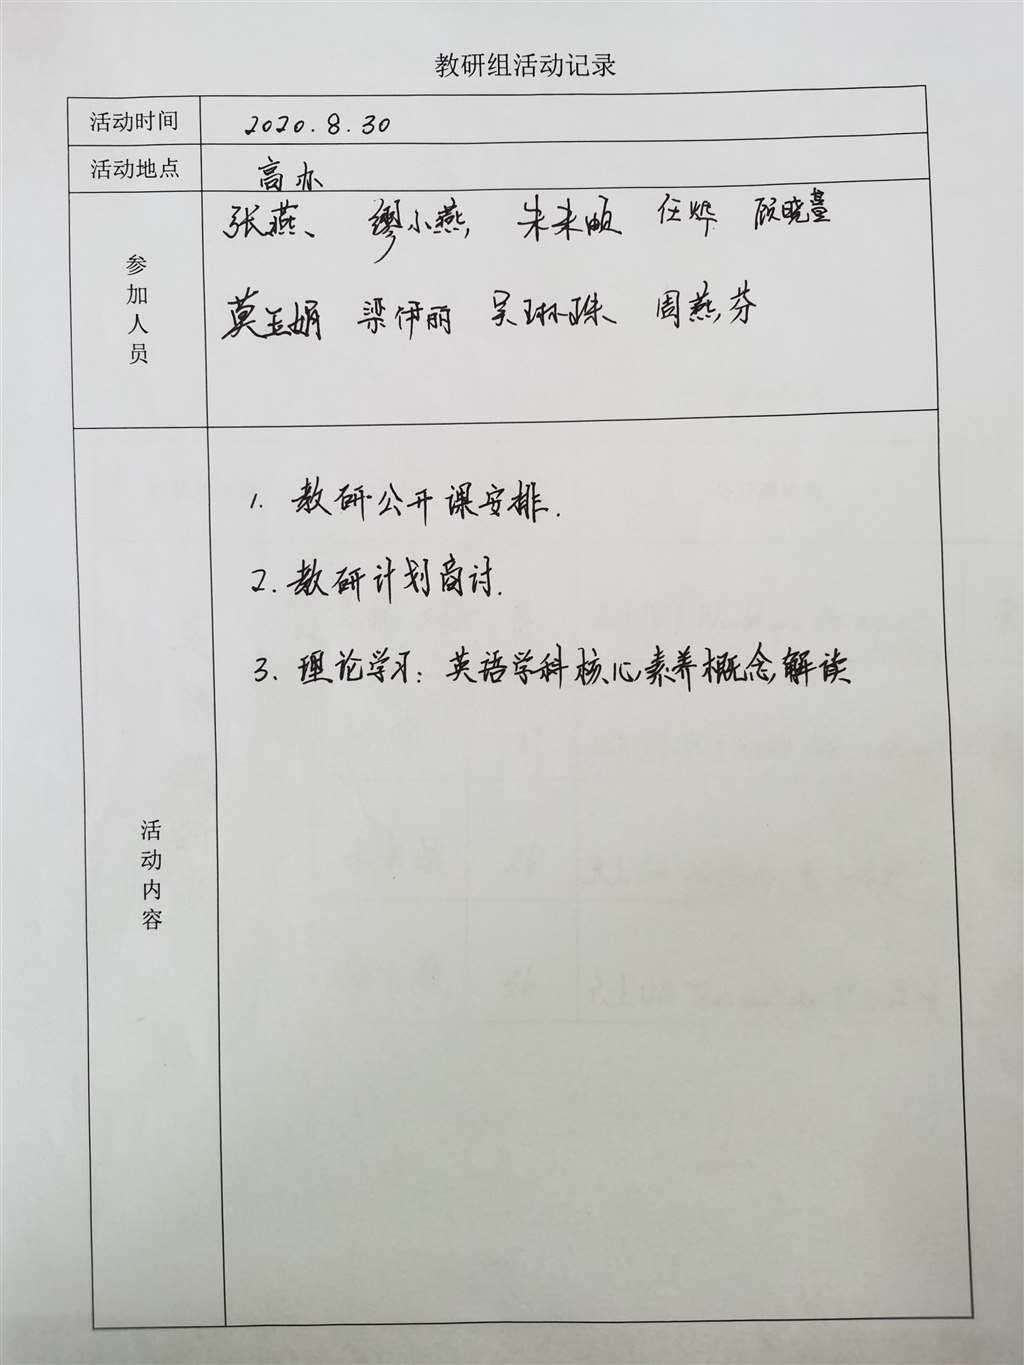 教研组活动记录
活动时间 2020.8.30
活动地点 高办
参加人员
张燕、 缪小燕 朱来颐 任烨 顾晓
莫玉娟 梁伊丽 吴琳珠 周燕芬
1. 教研公开课安排.
2. 教研计划商讨.
3. 理论学习: 英语学科核心素养概念解读
活动内容